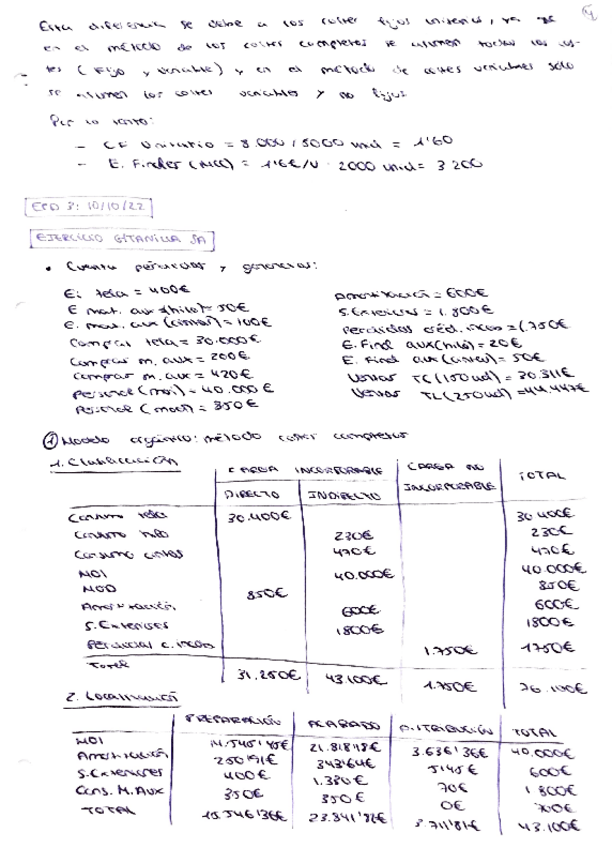 4
Esta diferencia se debe a los costes fijos unitarios, ya que
en el método de los costes completos se asumen todos los cos-
tes (Fijo y variable) y en el método de costes variables sólo
se asumen los costes variables y no fijos
Por lo tanto:
- CF Unitario = 8.000 / 5000 und = 1'60
- E. Finales (MCC) = 1'6€/U · 2000 unid = 3200
EPD 3: 10/10/22
EJERCICIO GITANILLA SA
• Cuenta pérdidas y ganancias:
Ei tela = 400€
E mat. aux (hilo) = 50€
E. mat. aux (cintas) = 100€
Compras tela = 30.000€
Compras m. aux = 200€
Compras m. aux = 420€
Personal (moi) = 40.000€
Personal (mod) = 850€
Amortización = 600€
S. Exteriores = 1.800€
Pérdidas créd. incob = 1.750€
E. Final aux (hilo) = 20€
E. Final aux (cintas) = 50€
Ventas TC (150 ud) = 30.311€
Ventas TL (250 ud) = 44.447€
① Modelo orgánico: método costes completos
1. Clasificación
CARGA INCORPORABLE CARGA NO INCORPORABLE TOTAL
DIRECTO INDIRECTO
Consumo tela 30.400€ 30.400€
Consumo hilo 230€ 230€
Consumo cintas 470€ 470€
MOI 40.000€ 40.000€
MOD 850€ 850€
Amortización 600€ 600€
S. Exteriores 1800€ 1800€
Pérdidas c. incob 1.750€ 1750€
Total 31.250€ 43.100€ 1.750€ 76.100€
2. Localización
PREPARACIÓN ACABADO DISTRIBUCIÓN TOTAL
MOI 14.545'45€ 21.818'18€ 3.636'36€ 40.000€
Amortización 250'91€ 343'64€ 5'45€ 600€
S. Exteriores 400€ 1.330€ 70€ 1.800€
Cons. M. Aux 350€ 350€ 0€ 700€
TOTAL 15.546'36€ 23.841'82€ 3.711'81€ 43.100€